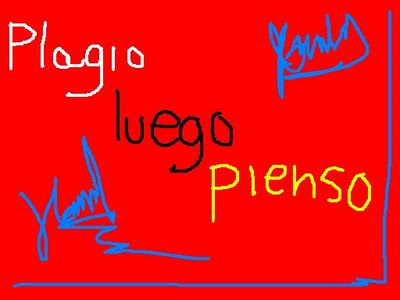 Plagio
luego
pienso